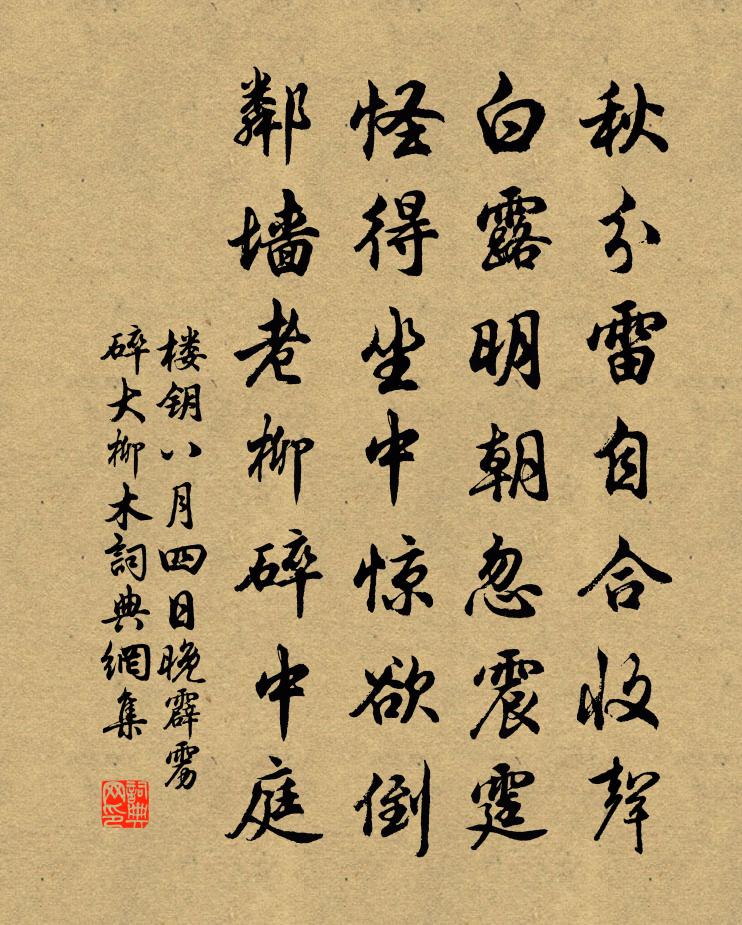 秋分雷自合收聲
白露明朝忽震霆
怪得坐中惊欲倒
鄰墙老柳碎中庭
楼钥八月四日晚霹雳
碎大柳木詞典網集
詞典网印